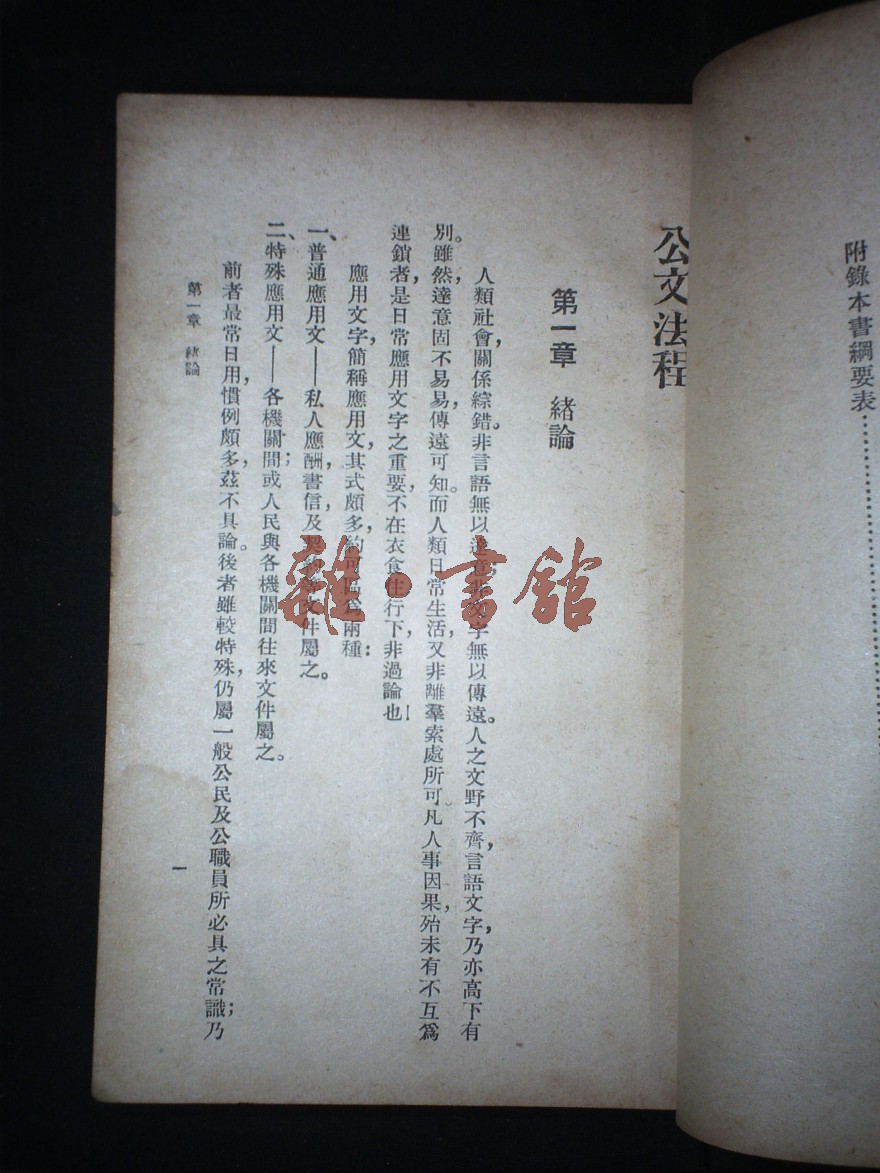 附錄本書綱要表……………………
公文法程
第一章 緒論
人類社會，關係綜錯。非言語無以達意，非文字無以傳遠。人之文野不齊，言語文字，乃亦高下有
別。雖然，達意固不易易，傳遠可知。而人類日常生活，又非離羣索處所可。凡人事因果，殆未有不互爲
連鎖者，是日常應用文字之重要，不在衣食住行下，非過論也！
應用文字，簡稱應用文，其式頗多，約可區爲兩種：
一、普通應用文——私人應酬，書信，及契約等文件屬之。
二、特殊應用文——各機關間；或人民與各機關間往來文件屬之。
前者最常日用，慣例頗多，茲不具論。後者雖較特殊，仍屬一般公民及公職員所必具之常識；乃
第一章 緒論
一
雜·書館